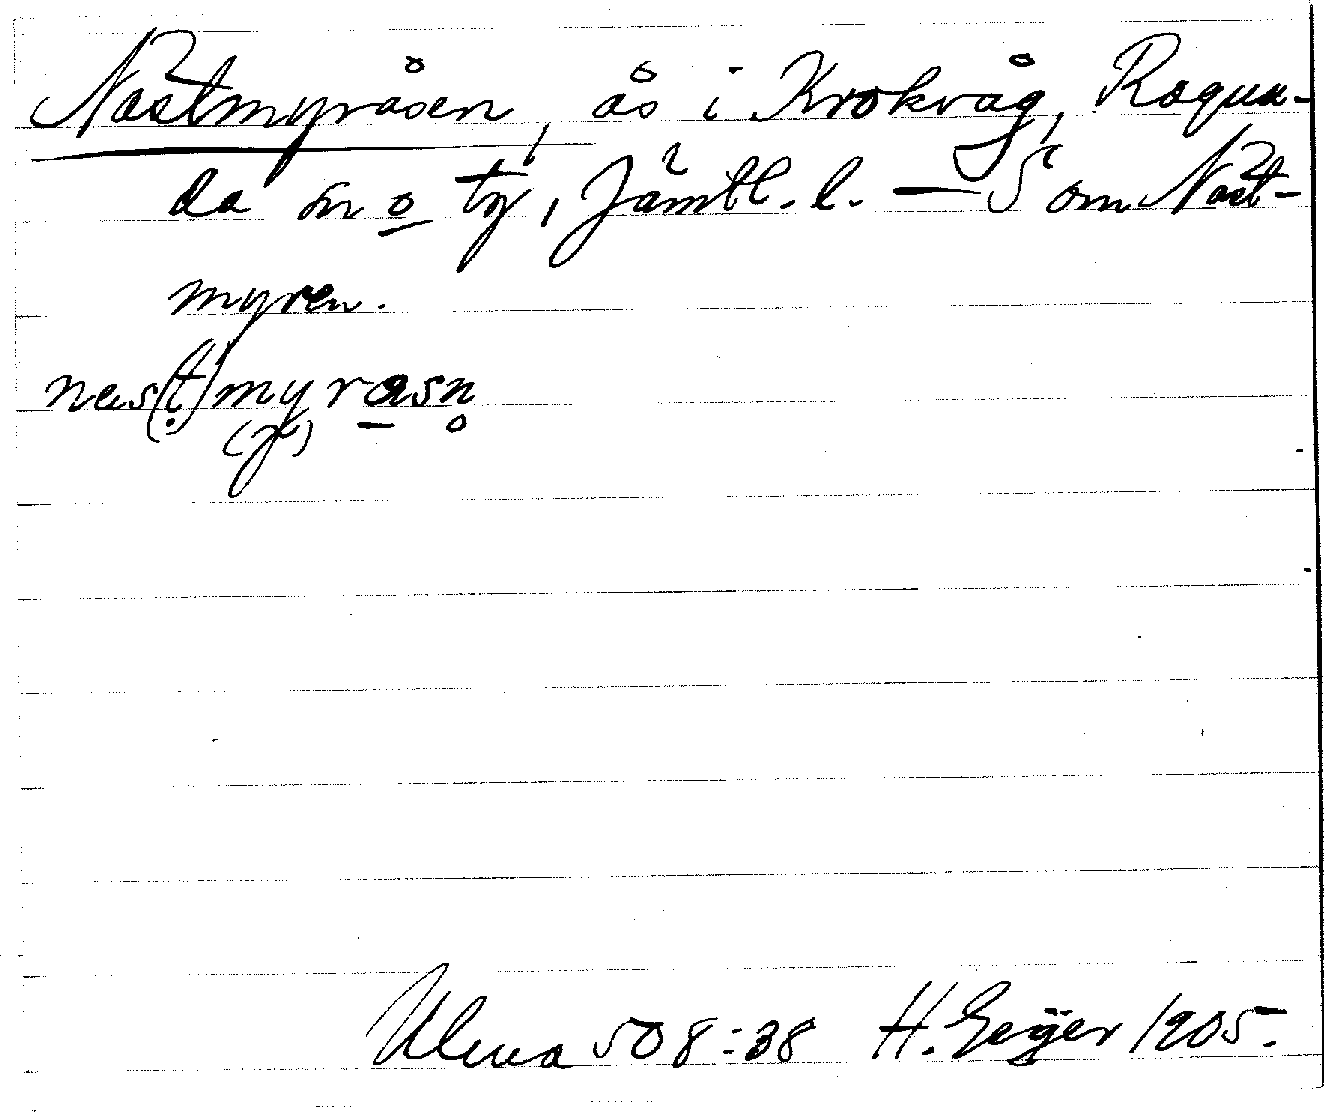 Nästmyråsen, ås i Krokvåg, Ragun-
da sn o tg, Jämtl. l. — S om Näst-
myren.
næs(t)myrasn
(y)
Ulma 508:38 H. Geijer 1905.